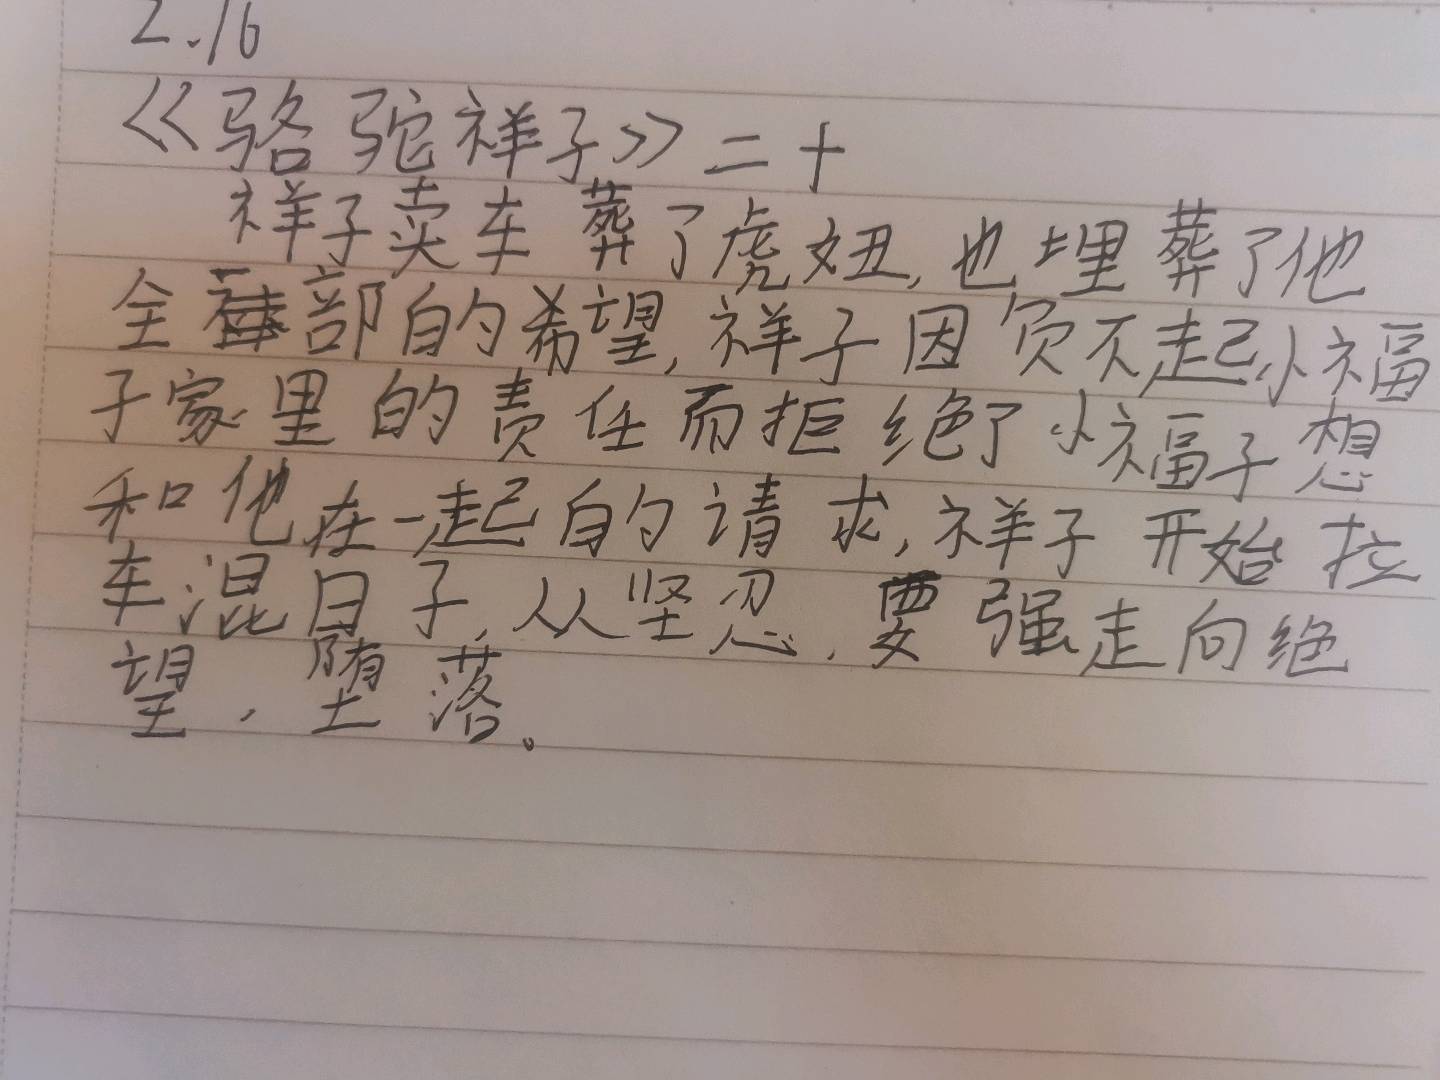 2.16
《骆驼祥子》二十
祥子卖车葬了虎妞,也埋葬了他
全部的希望,祥子因负不起小福
子家里的责任而拒绝了小福子想
和他在一起的请求,祥子开始拉
车混日子,从坚忍、要强走向绝
望、堕落。